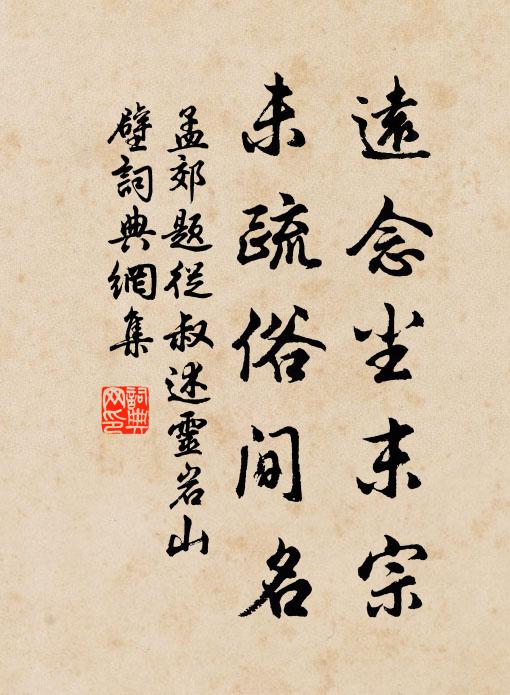 遠念尘末宗
未疏俗间名
孟郊题從叔述靈岩山
壁詞典網集
詞典
网印